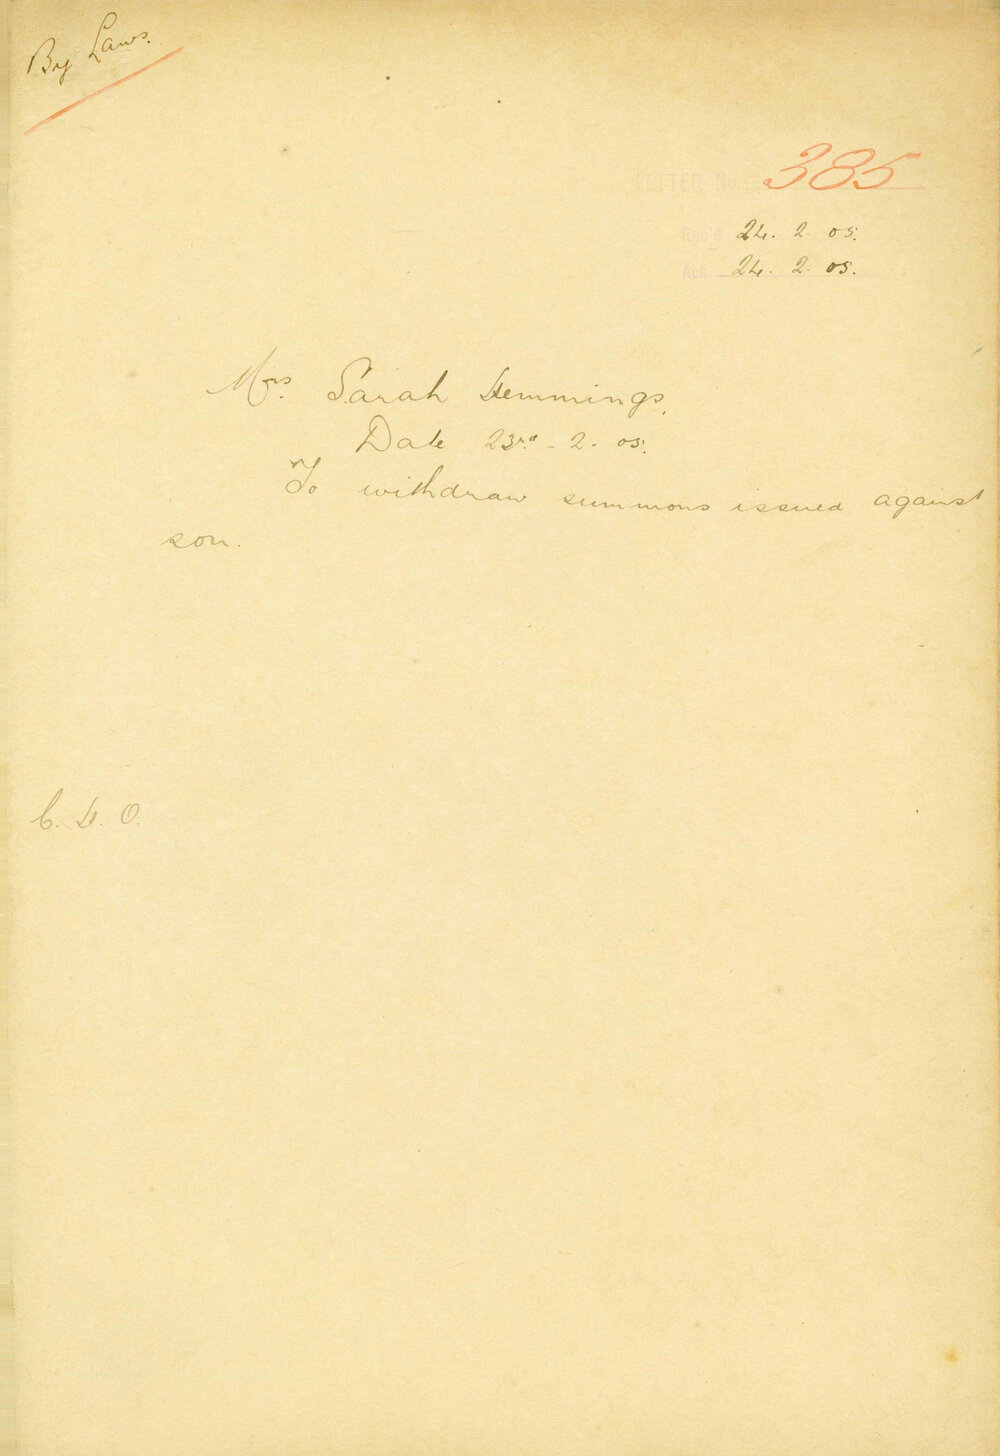 By Laws.
LETTER No. 385
Rec'd 24. 2. 05.
Ack. 24. 2. 05.
Mrs. Sarah Hemmings,
Date 23rd - 2. 05.
To withdraw summons issued against
son.
C. H. O.